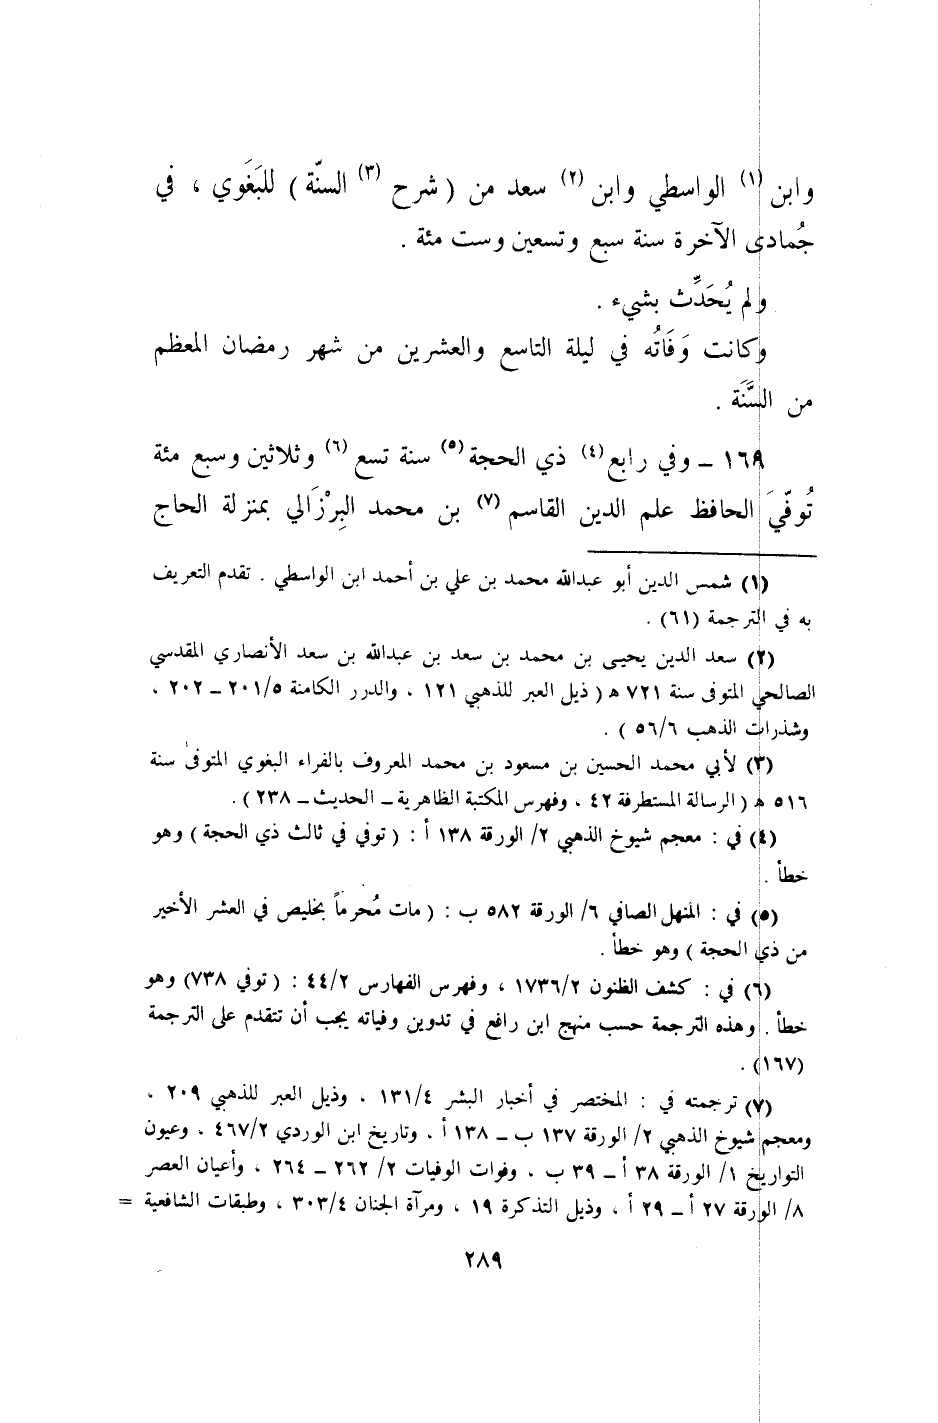 وابن (١) الواسطي وابن (٢) سعد من ( شرح (٣) السنّة ) للبَغَوي ، في
جُمادى الآخرة سنة سبع وتسعين وست مئة .
ولم يُحَدِّث بشيء .
وكانت وَفَاتُه في ليلة التاسع والعشرين من شهر رمضان المعظم
من السَّنَة .
١٦٨ ـ وفي رابع (٤) ذي الحجة (٥) سنة تسع (٦) وثلاثين وسبع مئة
تُوفّيَ الحافظ علم الدين القاسم (٧) بن محمد البِرْزَالي بمنزلة الحاج
(١) شمس الدين أبو عبدالله محمد بن علي بن أحمد ابن الواسطي . تقدم التعريف
به في الترجمة (٦١) .
(٢) سعد الدين يحيى بن محمد بن سعد بن عبدالله بن سعد الأنصاري المقدسي
الصالحي المتوفى سنة ٧٢١ ه ( ذيل العبر للذهبي ١٢١ ، والدرر الكامنة ٢٠١/٥ ـ ٢٠٢ ،
وشذرات الذهب ٥٦/٦ ) .
(٣) لأبي محمد الحسين بن مسعود بن محمد المعروف بالفراء البغوي المتوفى سنة
٥١٦ ه ( الرسالة المستطرفة ٤٢ ، وفهرس المكتبة الظاهرية ـ الحديث ـ ٢٣٨ ) .
(٤) في : معجم شيوخ الذهبي ٢/ الورقة ١٣٨ أ : ( توفي في ثالث ذي الحجة ) وهو
خطأ .
(٥) في : المنهل الصافي ٦/ الورقة ٥٨٢ ب : ( مات مُحرماً بخليص في العشر الأخير
من ذي الحجة ) وهو خطأ .
(٦) في : كشف الظنون ١٧٣٦/٢ ، وفهرس الفهارس ٤٤/٢ : ( توفي ٧٣٨) وهو
خطأ . وهذه الترجمة حسب منهج ابن رافع في تدوين وفياته يجب أن تتقدم على الترجمة
(١٦٧) .
(٧) ترجمته في : المختصر في أخبار البشر ١٣١/٤ ، وذيل العبر للذهبي ٢٠٩ ،
ومعجم شيوخ الذهبي ٢/ الورقة ١٣٧ ب ـ ١٣٨ أ ، وتاريخ ابن الوردي ٤٦٧/٢ ، وعيون
التواريخ ١/ الورقة ٣٨ أ ـ ٣٩ ب ، وفوات الوفيات ٢/ ٢٦٢ ـ ٢٦٤ ، وأعيان العصر
٨/ الورقة ٢٧ أ ـ ٢٩ أ ، وذيل التذكرة ١٩ ، ومرآة الجنان ٣٠٣/٤ ، وطبقات الشافعية =
٢٨٩